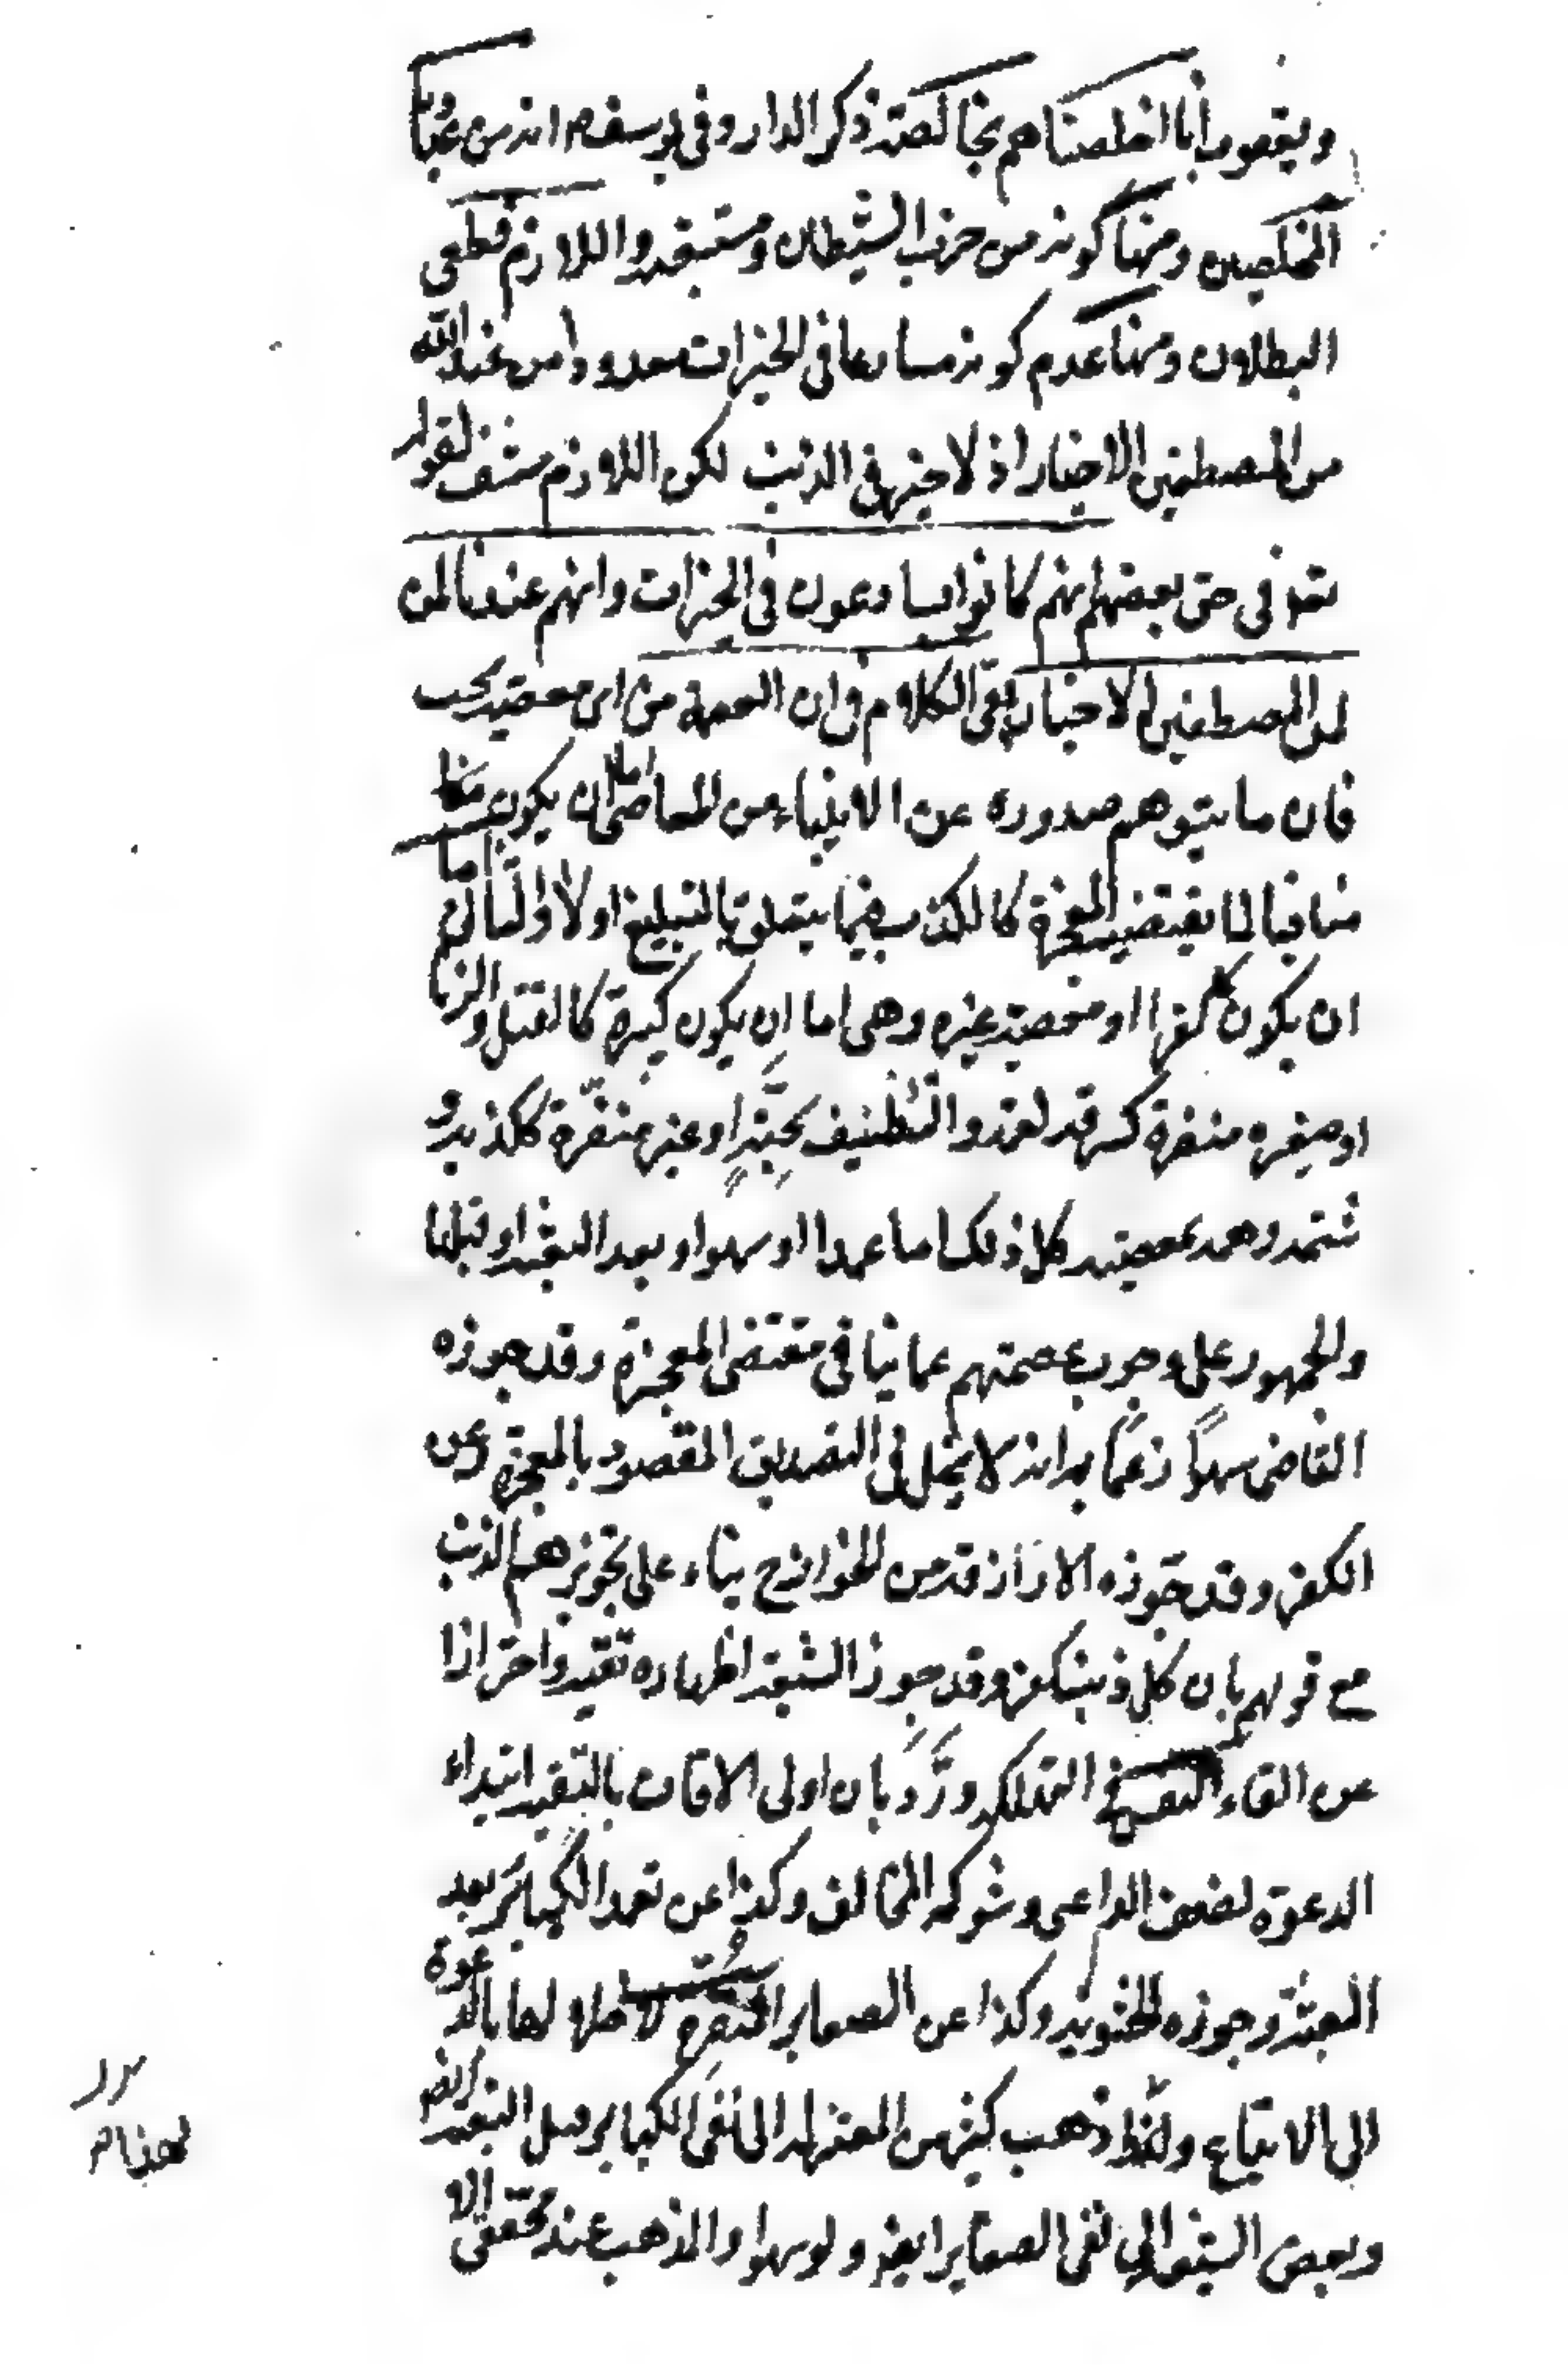 ويعقوب انا اخلصناهم بخالصة ذكر الدار وفي يوسف م انه من عبادنا
المخلصين ومنها كونه من حزب الشيطان ومتبعيه واللازم قطعي
البطلان ومنها عدم كونه مسارعا في الخيرات معدودا من عند الله
من المصطفين الاخيار اذ لا خير في الذنب لكن اللازم منتف لقوله
تعه في حق بعضهم انهم كانوا يسارعون في الخيرات وانهم عندنا لمن
لمن المصطفين الاخيار بقي الكلام في ان العصمة من اي معصية يجب
فان ما يتوهم صدوره عن الانبياء من المعاصي اما ان يكون
منافيا لما يقتضيه المعجزة كالكذب فيما يتعلق بالتبليغ اولا والثاني اما
ان يكون كفرا او معصية غيره وهي اما ان يكون كبيرة كالقتل والزنا
او صغيرة منفرة كسرقة لقمة والتطفيف بحبة او غير منفرة ككذبة و
شتمة وهمة بمعصية كل ذلك اما عمدا او سهوا وبعد البعثة او قبلها
والجمهور على وجوب عصمتهم عما ينافي مقتضى المعجزة وقد جوزه
القاضي سهوا زعما به انه لا يخل في التصديق المقصود بالمعجزة وعن
الكفر وقد جوزه الازارقة من الخوارج بناء على تجويزهم الذنب
مع قولهم بان كل ذنب كفر وقد جوز الشيعة اظهاره تقية واحترازا
عن القاء النفس في التهلكة ورد بان اولى الاوقات بالتقية ابتداء
الدعوة لضعف الداعي وشوكة المخالف وكذا عن تعمد الكبائر بعد
البعثة وجوزه الحشوية وكذا عن الصغاير المنفرة لاخلالها بالدعوة
الى الاتباع ولهذا ذهب كثير من المعتزلة الى نفي الكباير قبل البعثة ايضا
وبعض الشيعة الى نفي الصغاير ايضا ولو سهوا والمذهب عند محققي الا
لهذام